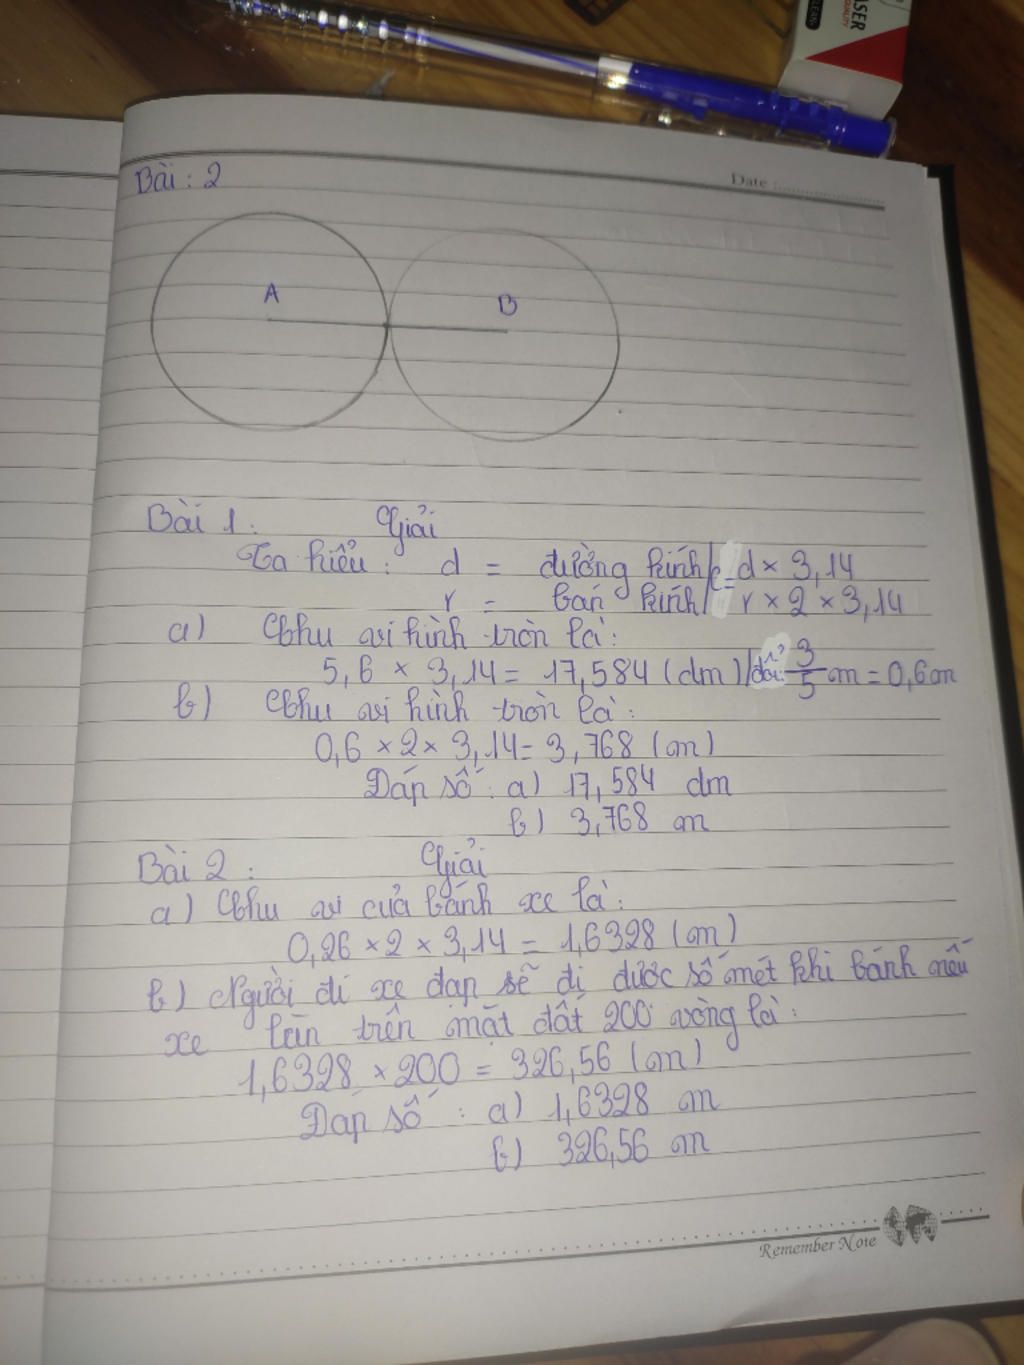 ASER
QUALITY
Date
Bài : 2
A
B
Bài 1 : Giải
Ta hiểu : d = đường kính / c = d × 3,14
r = bán kính / r × 2 × 3,14
a) Chu vi hình tròn là :
5,6 × 3,14 = 17,584 (dm) / đổi : 3/5 m = 0,6m
b) Chu vi hình tròn là :
0,6 × 2 × 3,14 = 3,768 (m)
Đáp số : a) 17,584 dm
b) 3,768 m
Bài 2 : Giải
a) Chu vi của bánh xe là :
0,26 × 2 × 3,14 = 1,6328 (m)
b) Người đi xe đạp sẽ đi được số mét khi bánh nếu
xe lăn trên mặt đất 200 vòng là :
1,6328 × 200 = 326,56 (m)
Đáp số : a) 1,6328 m
b) 326,56 m
Remember Note